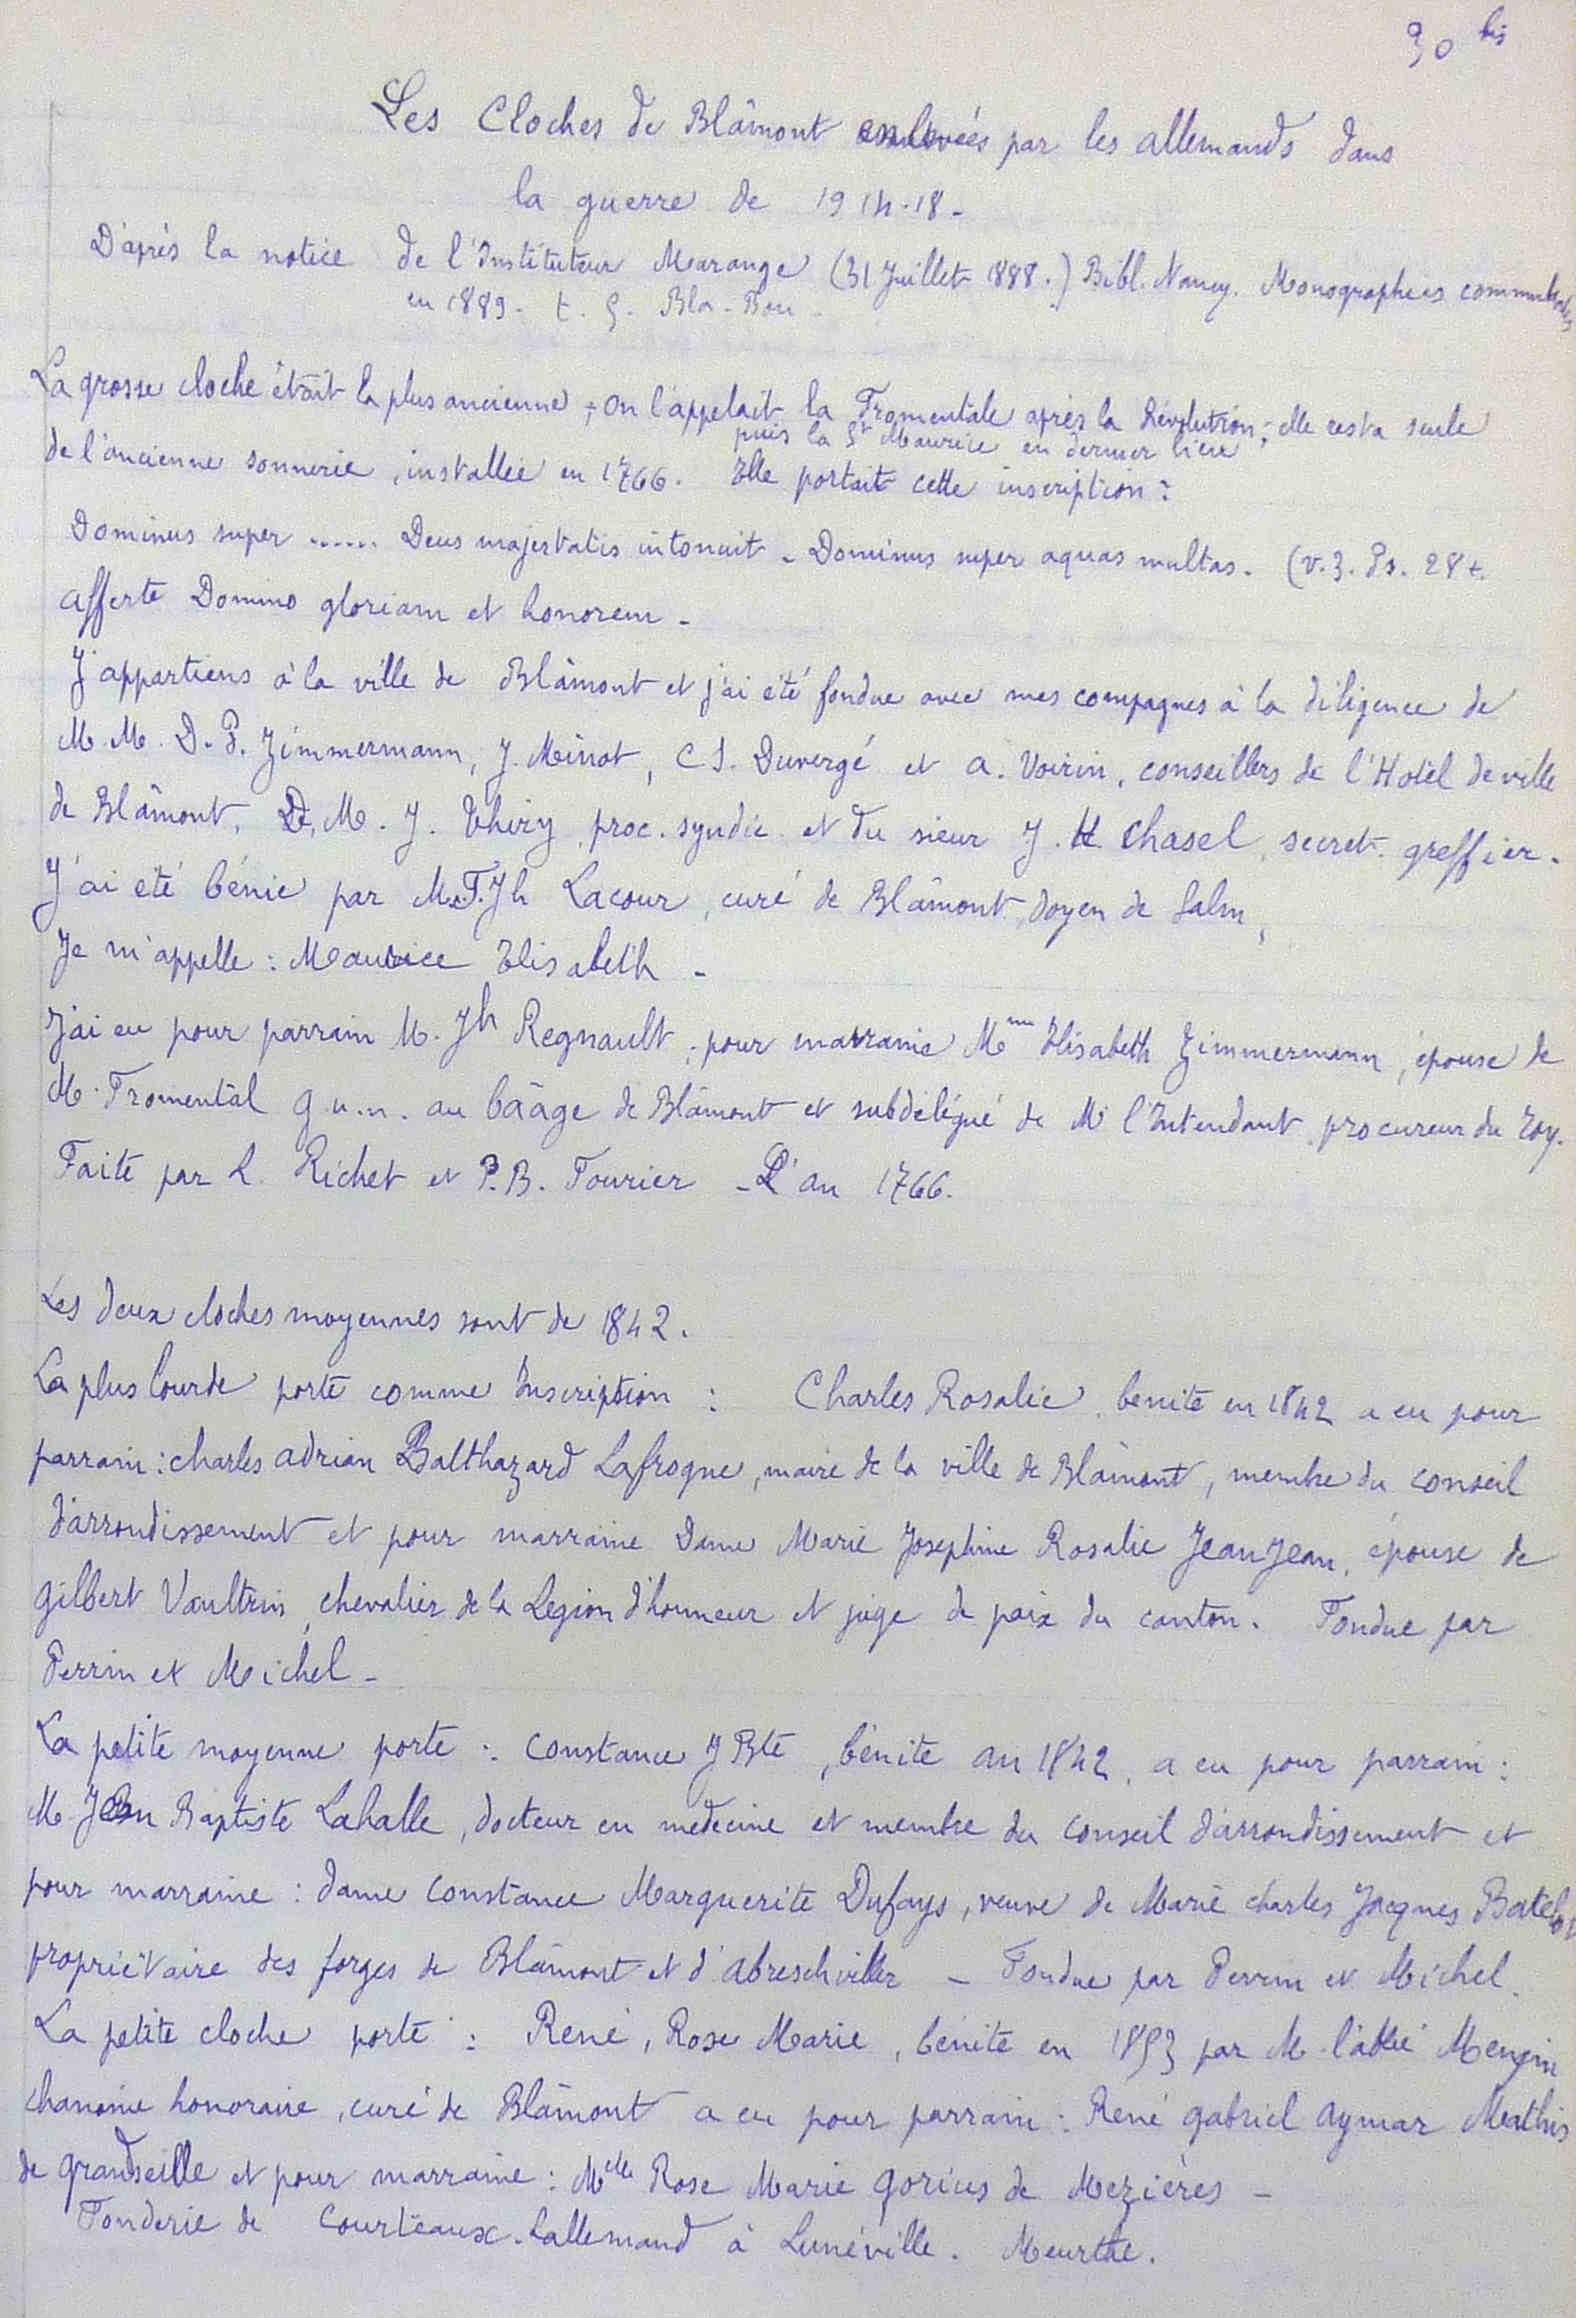 30 bis
Les Cloches de Blâmont enlevées par les allemands dans
la guerre de 1914-18 -
D'après la notice de l'Instituteur Marange (31 Juillet 1888.) Bibl. Nancy. Monographies communales
en 1889 - t. 5. Bla - Bou -
La grosse cloche était la plus ancienne ; on l'appelait la Fromentale après la Révolution ; elle resta seule
puis la St Maurice en dernier lieu
de l'ancienne sonnerie, installée en 1766. Elle portait cette inscription :
Dominus super ...... Deus majestatis intonuit - Dominus super aquas multas. (v. 3. Ps. 28 +.
afferte Domino gloriam et honorem -
J'appartiens à la ville de Blâmont et j'ai été fondue avec mes compagnes à la diligence de
M. M. D. P. Zimmermann, J. Minot, C S. Duvergé et a. Voirin, conseillers de l'Hotel de ville
de Blâmont, De, M. J. Thiry, proc. syndic et du sieur J. H. Chasel, secret. greffier.
J'ai été bénie par M. T. Jh Lacour, curé de Blâmont, doyen de Salm,
Je m'appelle : Maurice Elisabeth -
J'ai eu pour parrain M. Jh Regnault, pour marraine Mme Elisabeth Zimmermann, épouse de
M. Fromental g. u. n. au baâge de Blâmont et subdélégué de Mr l'Intendant, procureur du roy.
Faite par L. Richet et P. B. Fourier - L'an 1766.
Les deux cloches moyennes sont de 1842.
La plus lourde porte comme Inscription : Charles Rosalie, benite en 1842 a eu pour
parrain : charles adrian Balthazard Lafrogne, maire de la ville de Blâmont, membre du conseil
d'arrondissement et pour marraine Dame Marie Josephine Rosalie JeanJean, épouse de
gilbert Vaultrin, chevalier de la Legion d'honneur et juge de paix du canton. Fondue par
Perrin et Michel -
La petite moyenne porte : Constance J Bte, bénite an 1842, a eu pour parrain :
M. Jean Baptiste Lahalle, docteur en médecine et membre du conseil d'arrondissement et
pour marraine : dame constance Marguerite Dufays, veuve de Marie charles Jacques Batelot
propriétaire des forges de Blâmont et d'abreschviller - Fondue par Perrin et Michel.
La petite cloche porte : René, Rose Marie, bénite en 1893 par M. l'abbé Mengin
chanoine honoraire, curé de Blâmont a eu pour parrain : René gabriel aymar Mathis
de grandseille et pour marraine : Melle Rose Marie gorius de Mezières -
Fonderie de Courteaux-Lallemand à Lunéville. Meurthe.